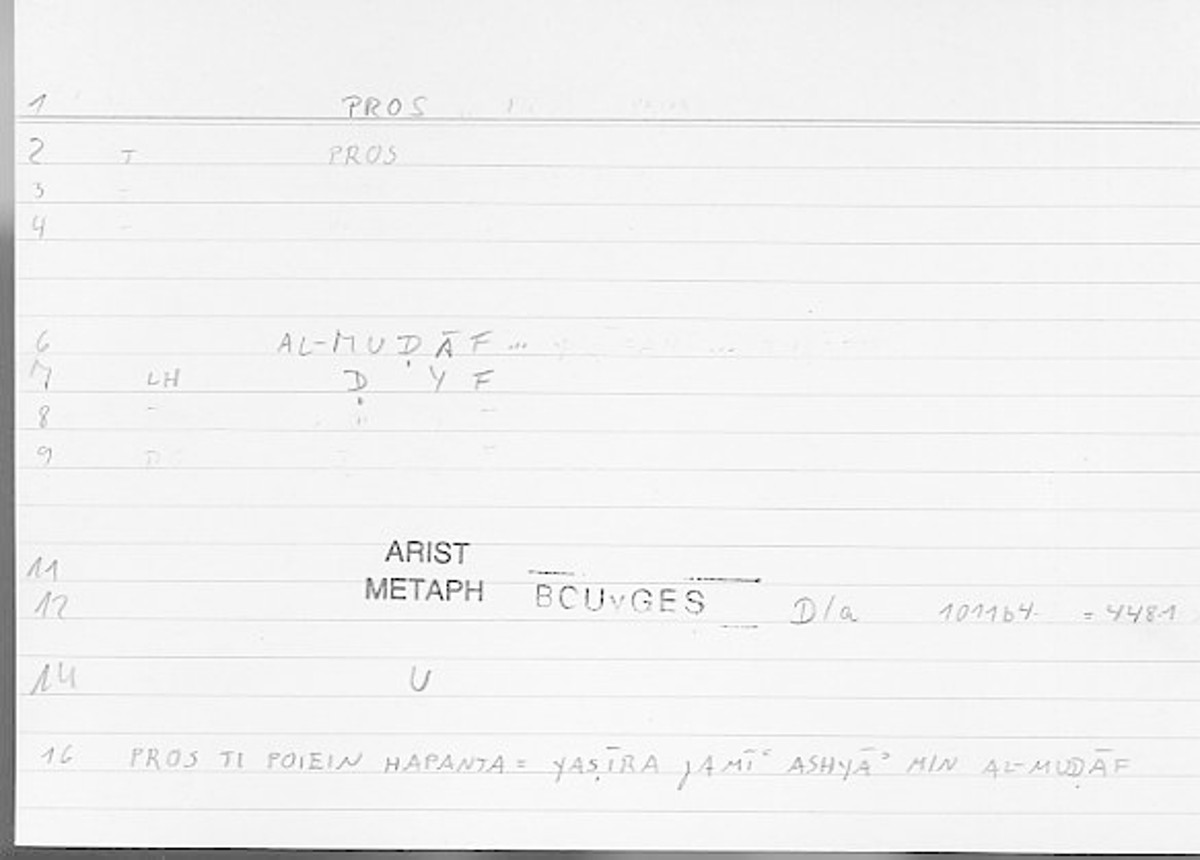 1 PROS
2 T PROS
3 -
4 -
6 AL-MUḌĀF ...
7 LH Ḍ Y F
8 - " -
9
ARIST
11
METAPH BOUYGES
12 D/a 1011b4 = 448.1
14 U
16 PROS TI POIEIN HAPANTA = YAṢĪRA JAMĪʿ ASHYĀʾ MIN AL-MUḌĀF